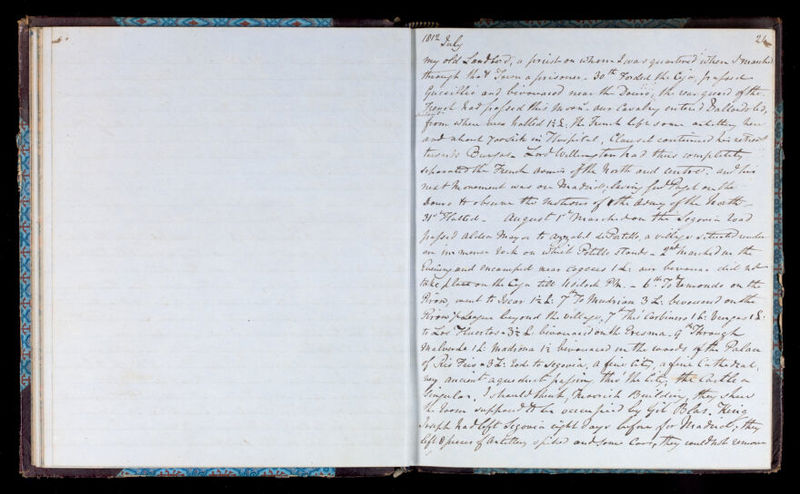 1812 July 24
my old Landlord, a priest on whom I was quartered when I marched
through that Town a prisoner - 30th Forded the Cega, passed
and bivouaced near the Douro, the rear guard of the
French had passed this noon. our Cavalry entered Valladolid,
from where we halted 1½ L. the French left some artillery there
and about 700 sick in Hospital, Clausel continued his retreat
towards Burgos. Lord Wellington had thus completely
separated the French armies of the North and centre, and his
next Movement was on Madrid, leaving on the
Douro to observe the motions of the army of the North -
31st Halted - August 1st Marched on the Segovia road
passed Aldea Mayor to de Potillo, a village situated under
an immense rock on which Potillo stands - 2nd Marched in the
Evening and encamped near 1 L: our bivouac did not
take place on the Cega till 11 o'clock P.M. - 6th To on the
Piron, went to Iscar 1½ L: 7th To 3 L: bivouaced on the
Piron ½ League beyond the village, 7th 1 L: 1 L:
to Los Huertos - 3½ L. bivouaced on the Eresma. 9th Through
1 L: Madrona 1½ bivouaced in the woods of the Palace
of Rio Frio - 3 L: rode to Segovia, a fine City, a fine Cathedral,
very ancient aqueduct passing thro' the City, the Castle a
singular, I should think, Moorish Building, they shew
the room supposed to be occupied by Gil Blas. King
Joseph had left Segovia eight days before for Madrid, they
left 8 pieces of Artillery spiked and some Cars, they could not remove